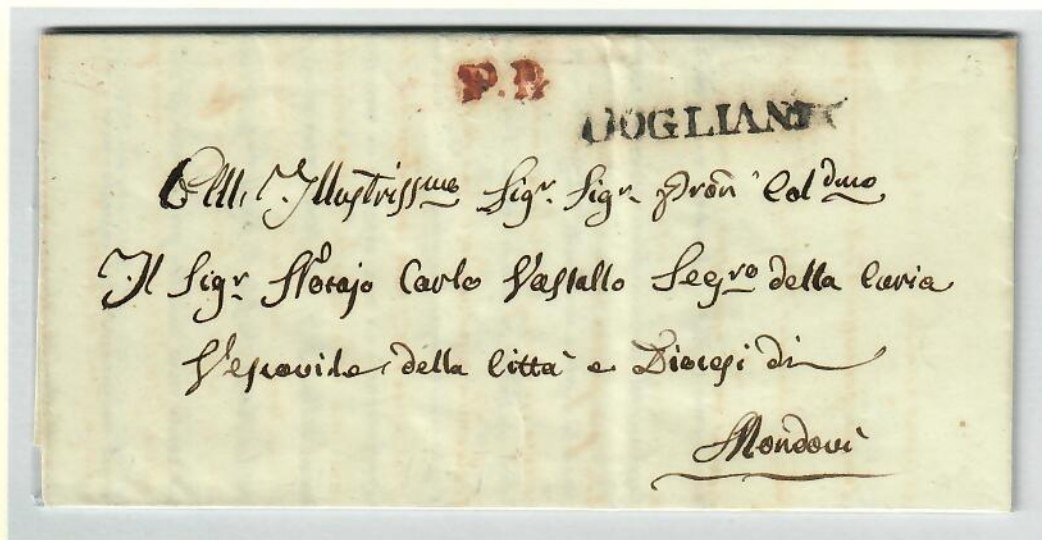 P.P.
DOGLIANI
All' Illustriss.mo Sig.r Sig.r Pron Col.dmo
Il Sig.r Carlo Vassallo Seg.ro della Curia
Vescovile della Città e Diocesi di
Mondovì